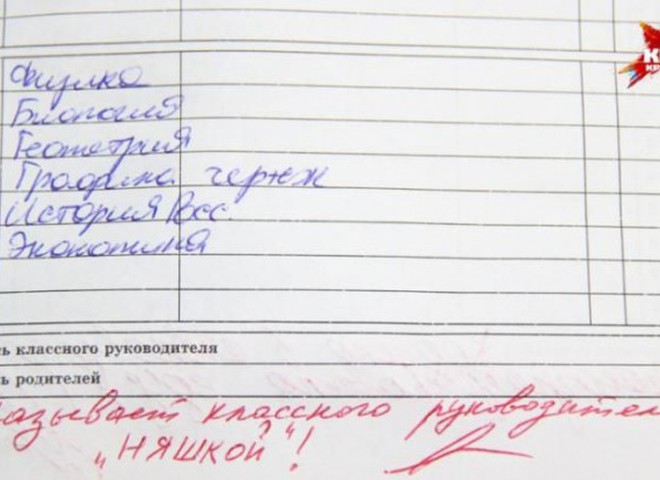 Физика
Биология
Геометрия
Графика черчж
История Росс.
Экономика
ь классного руководителя
ь родителей
азывает классного руководител
„НЯШКОЙ“!